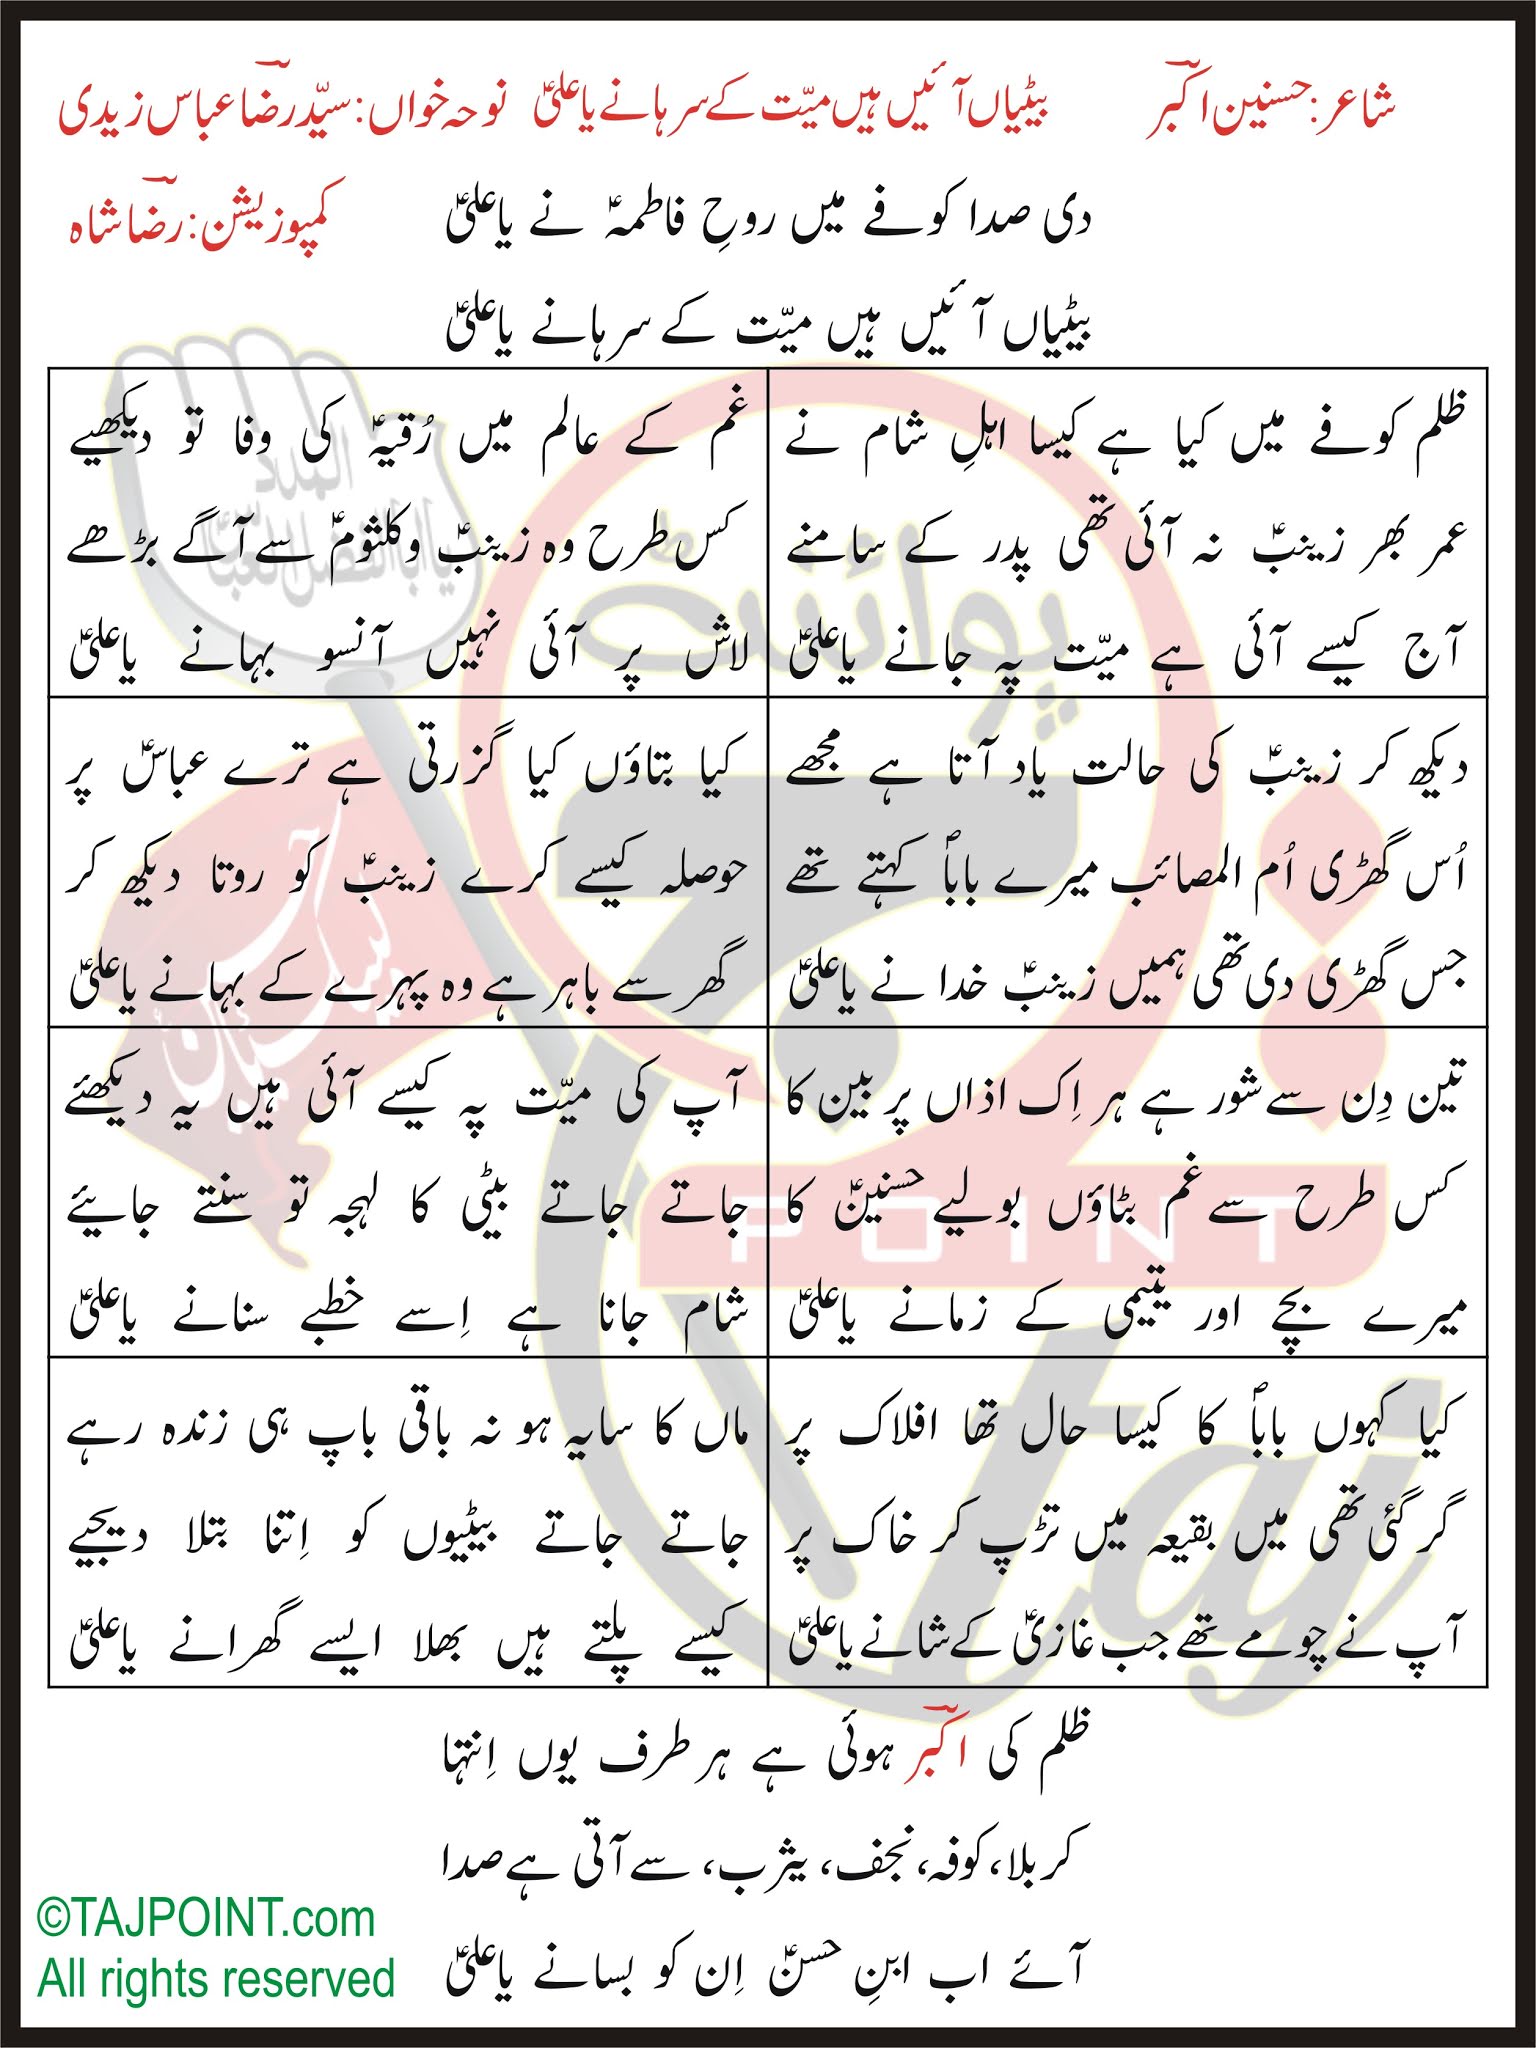 شاعر: حسنین اکبؔر بیٹیاں آئیں ہیں میّت کے سرہانے یا علیؑ نوحہ خواں: سیّد رضؔا عباس زیدی
کمپوزیشن: رضؔا شاہ
دی صدا کوفے میں روحِ فاطمہؑ نے یا علیؑ
بیٹیاں آئیں ہیں میّت کے سرہانے یا علیؑ
ظلم کوفے میں کیا ہے کیسا اہلِ شام نے
عمر بھر زینبؑ نہ آئی تھی پدر کے سامنے
آج کیسے آئی ہے میّت پہ جانے یا علیؑ
غم کے عالم میں رُقیہؑ کی وفا تو دیکھیے
کس طرح وہ زینبؑ و کلثومؑ سے آگے بڑھے
لاش پر آئی نہیں آنسو بہانے یا علیؑ
دیکھ کر زینبؑ کی حالت یاد آتا ہے مجھے
اُس گھڑی اُم المصائب میرے باباؐ کہتے تھے
جس گھڑی دی تھی ہمیں زینبؑ خدا نے یا علیؑ
کیا بتاؤں کیا گزرتی ہے ترے عباسؑ پر
حوصلہ کیسے کرے زینبؑ کو روتا دیکھ کر
گھر سے باہر ہے وہ پہرے کے بہانے یا علیؑ
تین دِن سے شور ہے ہر اِک اذاں پر بین کا
کس طرح سے غم بٹاؤں بولیے حسنینؑ کا
میرے بچے اور یتیمی کے زمانے یا علیؑ
آپ کی میّت پہ کیسے آئی ہیں یہ دیکھئے
جاتے جاتے بیٹی کا لہجہ تو سنتے جایئے
شام جانا ہے اِسے خطبے سنانے یا علیؑ
کیا کہوں باباؐ کا کیسا حال تھا افلاک پر
گر گئی تھی میں بقیعہ میں تڑپ کر خاک پر
آپ نے چومے تھے جب غازیؑ کے شانے یا علیؑ
ماں کا سایہ ہو نہ باقی باپ ہی زندہ رہے
جاتے جاتے بیٹیوں کو اِتنا بتلا دیجیے
کیسے پلتے ہیں بھلا ایسے گھرانے یا علیؑ
ظلم کی اکبؔر ہوئی ہے ہر طرف یوں اِنتہا
کربلا، کوفہ، نجف، یثرب، سے آتی ہے صدا
آئے اب ابنِ حسنؑ اِن کو بسانے یا علیؑ
©TAJPOINT.com
All rights reserved
پوائنٹ
POINT
Taj